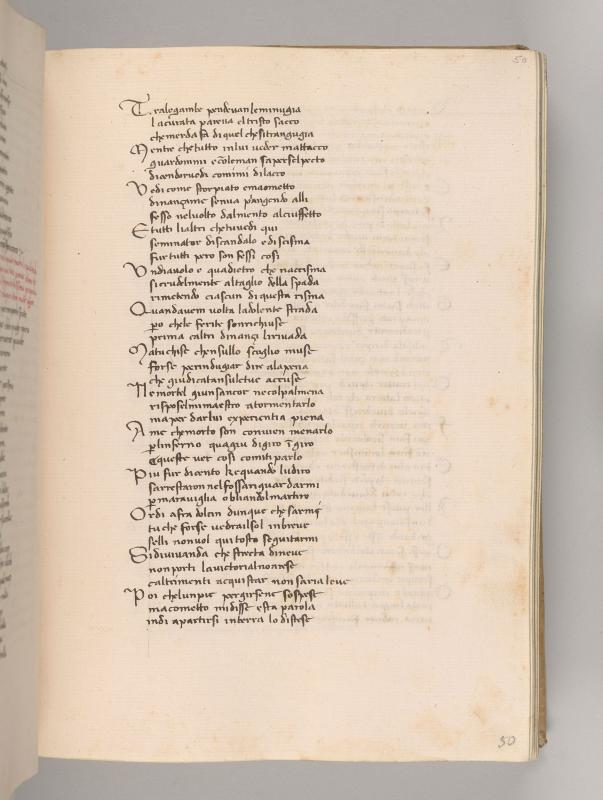 50
Tralegambe pendevan leminugia
lacurata pareva eltristo sacco
chemerda fa diquel chesitrangugia
Mentre chetutto inlui veder mattacco
guardommi ecoleman saperselpecto
dicendorvedi comimi dilacco
Vedi come storpiato emaometto
dinançame senva piangendo alli
fesso nelvolto dalmento alciuffetto
E tutti lialtri chetuvedi qui
seminator discandalo edi scisma
fur tutti pero son fessi cosi
Undiavolo e quadietro che naccisma
sicrudelmente altaglio della spada
rimetendo ciascun diquesta risma
Quandavem volta ladolente strada
po chele ferite sonrichiuse
prima caltri dinançi lirivada
Matuchise chensullo scoglio muse
forse perindugiar dire alapena
che giudicatansuletue accuse
Ne mortel giunsancor necolpalmena
risposelmimaestro atormentarlo
maper darlui experientia piena
A me chemorto son convien menarlo
plinferno quagiu digiro ĩ giro
equeste ver cosi comiti parlo
Piu fur dicento ke quando ludiro
sarrestaron nelfosso riguardarmi
pmaraviglia obliandolmartiro
Ordi afra dolcin dunque che sarmi
tu che forse vedrailsol inbreve
selli non vol qui tosto seguitarmi
Sidivivanda che strecta dineve
non porti lavictorialnoarese
caltrimenti acquistar non saria leve
Poi chelunpie pergirsene sospese
macometto midisse esta parola
indi apartirsi interra lo distese
50